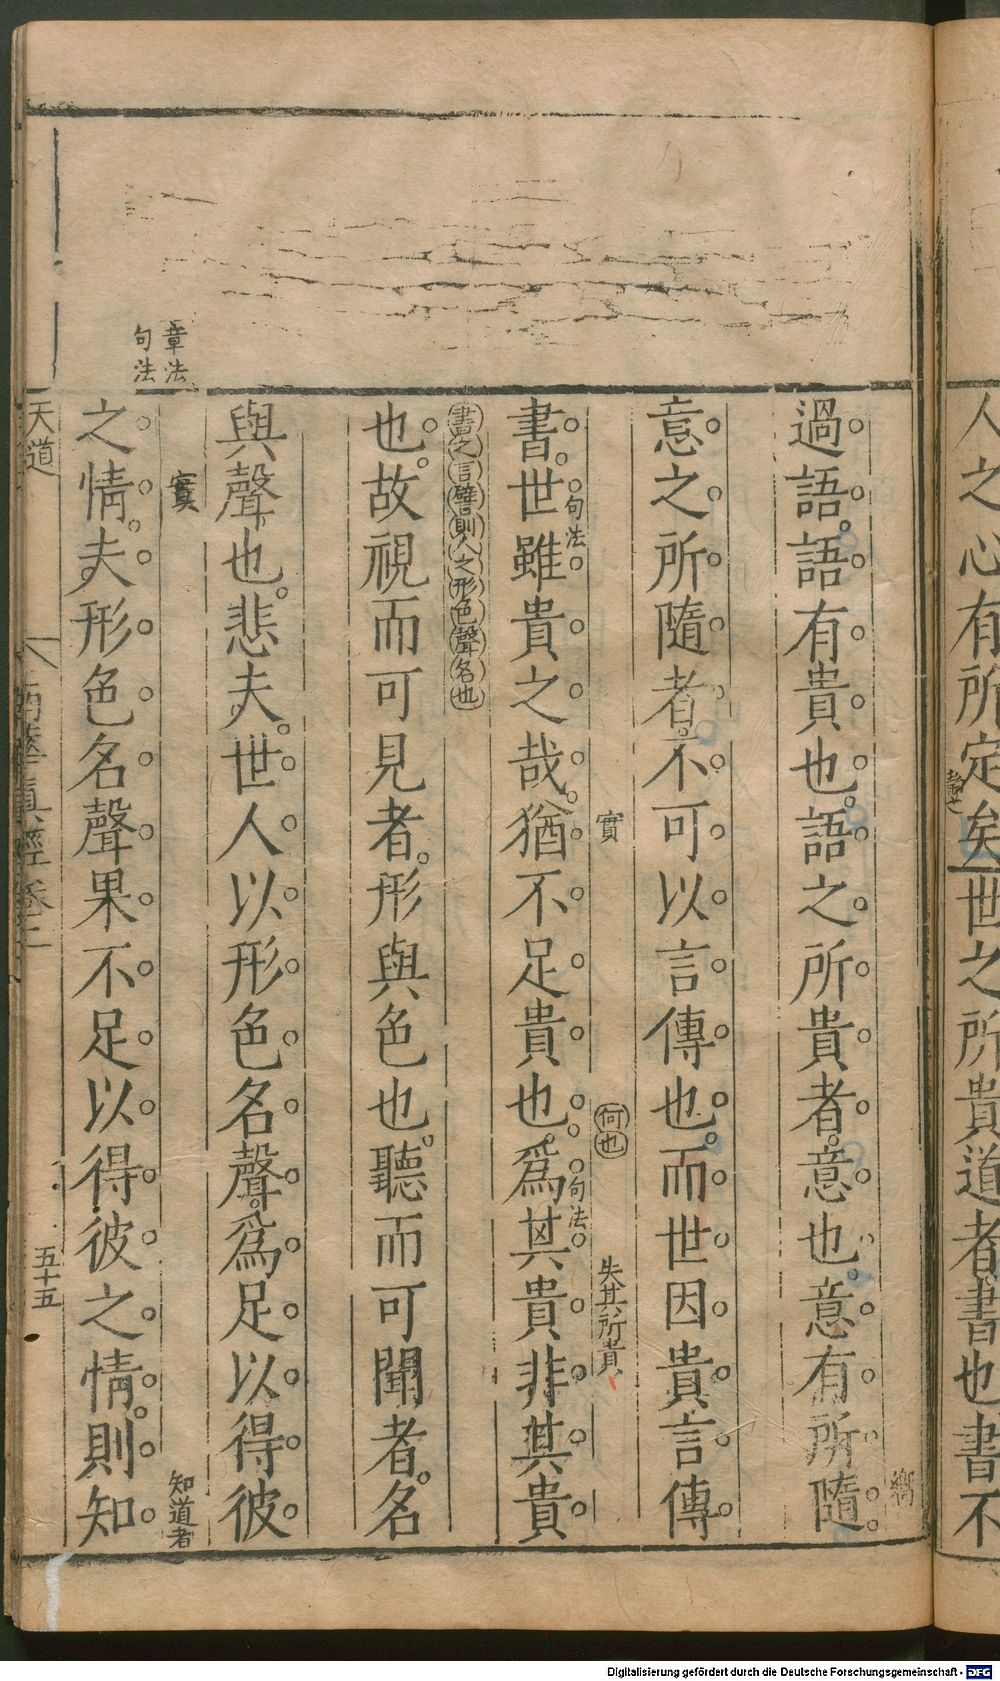 人之心有所定矣世之所貴道者書也書不
過語語有貴也語之所貴者意也意有所隨
嚮
意之所隨者不可以言傳也而世因貴言傳
實
何也
失其所貴
書世雖貴之哉猶不足貴也爲其貴非其貴
句法
句法
書之言譬則人之形色聲名也
也故視而可見者形與色也聽而可聞者名
與聲也悲夫世人以形色名聲爲足以得彼
章法
句法
實
知道者
之情夫形色名聲果不足以得彼之情則知
天道
南華眞經卷二
五十五
Digitalisierung gefördert durch die Deutsche Forschungsgemeinschaft - DFG